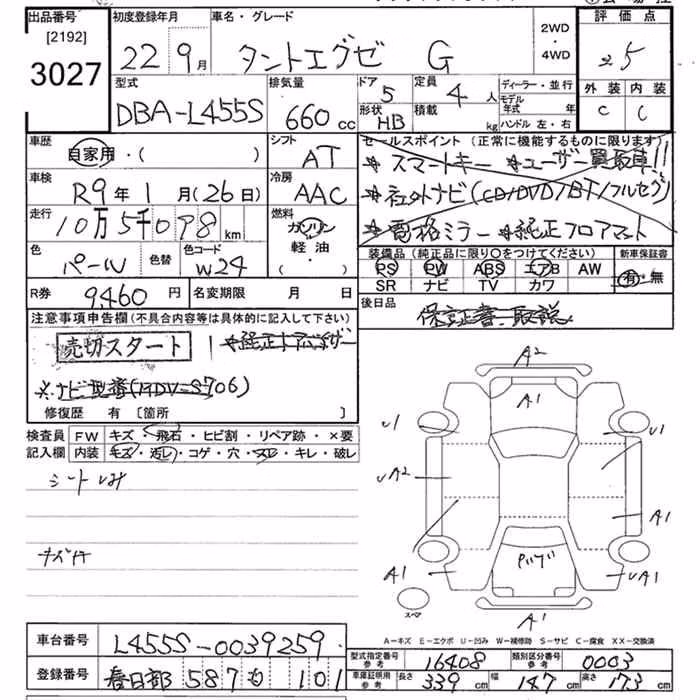 出品番号
[2192]
3027
初度登録年月
22 9月
車名・グレード
タントエグゼ G
2WD
・
4WD
評価点
25
型式
DBA-L455S
排気量
660cc
ドア
5
形状
HB
定員
4人
積載
kg
ディーラー・並行
モデル年式 年
ハンドル 左・右
外装 内装
C C
車歴
自家用・( )
シフト
AT
セールスポイント(正常に機能するものに限ります)
*スマートキー *ユーザー買取車!!
*社外ナビ(CD/DVD/BT/フルセグ)
*電格ミラー *純正フロアマット
車検
R9年1月(26日)
冷房
AAC
走行
10万5千098km
燃料
ガソリン
軽油
・( )
色
パール
色替
色コード
W24
装備品(純正品に限り○をつけてください)
PS PW ABS エアB AW
SR ナビ TV カワ
新車保証書
有・無
R券
9,460円
名変期限 月 日
後日品
保証書、取説
注意事項申告欄(不具合内容等は具体的に記入して下さい)
売切スタート
*純正ナビバイザー
※ナビ型番(MDV-S706)
修復歴 有 [箇所 ]
検査員
記入欄
FW キズ・飛石・ヒビ割・リペア跡・×要
内装 キズ・汚レ・コゲ・穴・スレ・キレ・破レ
シートしみ
A2
A1
U1
U1
UA2
A1
A1
UA1
A1
スペア
A-キズ E-エクボ U-凹み W-補修跡 S-サビ C-腐食 XX-交換済
車台番号
L455S-0039259
登録番号
春日部 587 も 101
型式指定番号
参考
16408
類別区分番号
参考
0003
車庫証明用
参考
長さ 339cm
幅 147cm
高さ 173cm